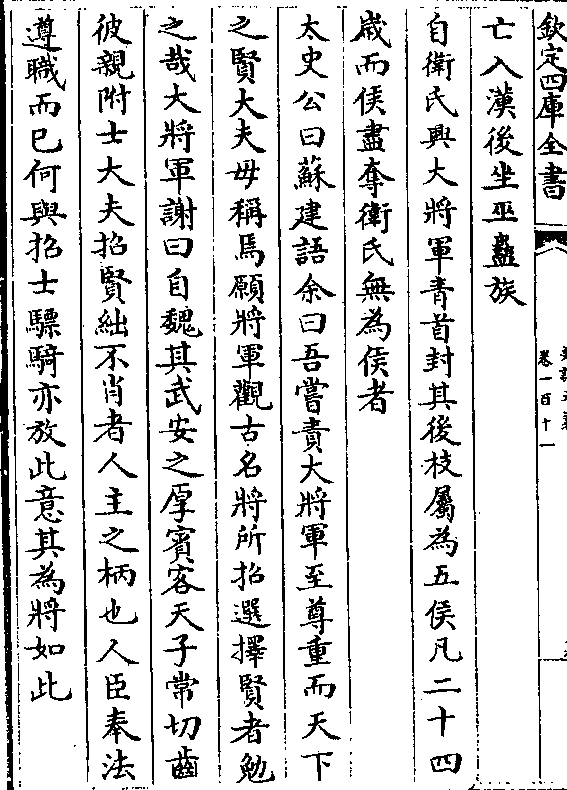 欽定四庫全書
卷一百十一
亡入漢後坐巫蠱族
自衛氏興大將軍青首封其後枝屬為五侯凡二十四
嵗而侯盡奪衛氏無為侯者
太史公曰蘇建語余曰吾嘗責大將軍至尊重而天下
之賢大夫毋稱焉願將軍觀古名將所招選擇賢者勉
之哉大將軍謝曰自魏其武安之厚賓客天子常切齒
彼親附士大夫招賢絀不肖者人主之柄也人臣奉法
遵職而已何與招士驃騎亦放此意其為將如此